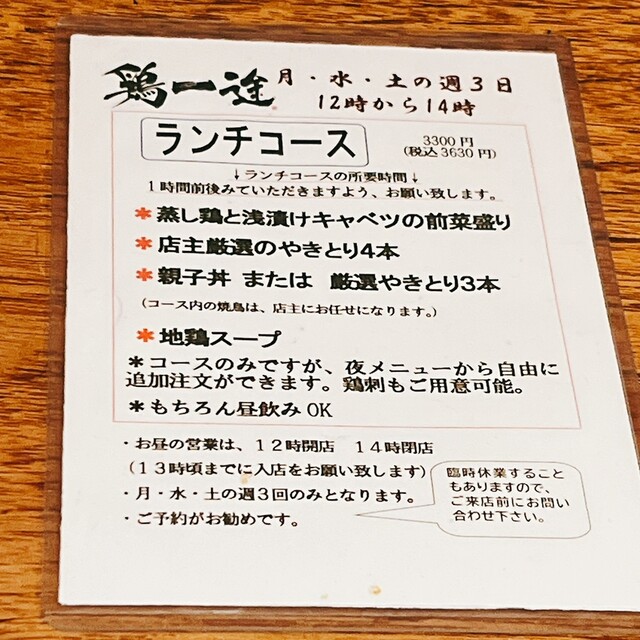 鶏一途 月・水・土の週３日
12時から14時
ランチコース 3300円
(税込3630円)
↓ランチコースの所要時間↓
１時間前後みていただきますよう、お願い致します。
*蒸し鶏と浅漬けキャベツの前菜盛り
*店主厳選のやきとり4本
*親子丼 または 厳選やきとり3本
(コース内の焼鳥は、店主にお任せになります。)
*地鶏スープ
*コースのみですが、夜メニューから自由に
追加注文ができます。鶏刺もご用意可能。
*もちろん昼飲みOK
・お昼の営業は、１２時開店 １４時閉店
(１３時頃までに入店をお願い致します)
・月・水・土の週３回のみとなります。
・ご予約がお勧めです。
臨時休業すること
もありますので、
ご来店前にお問い
合わせ下さい。